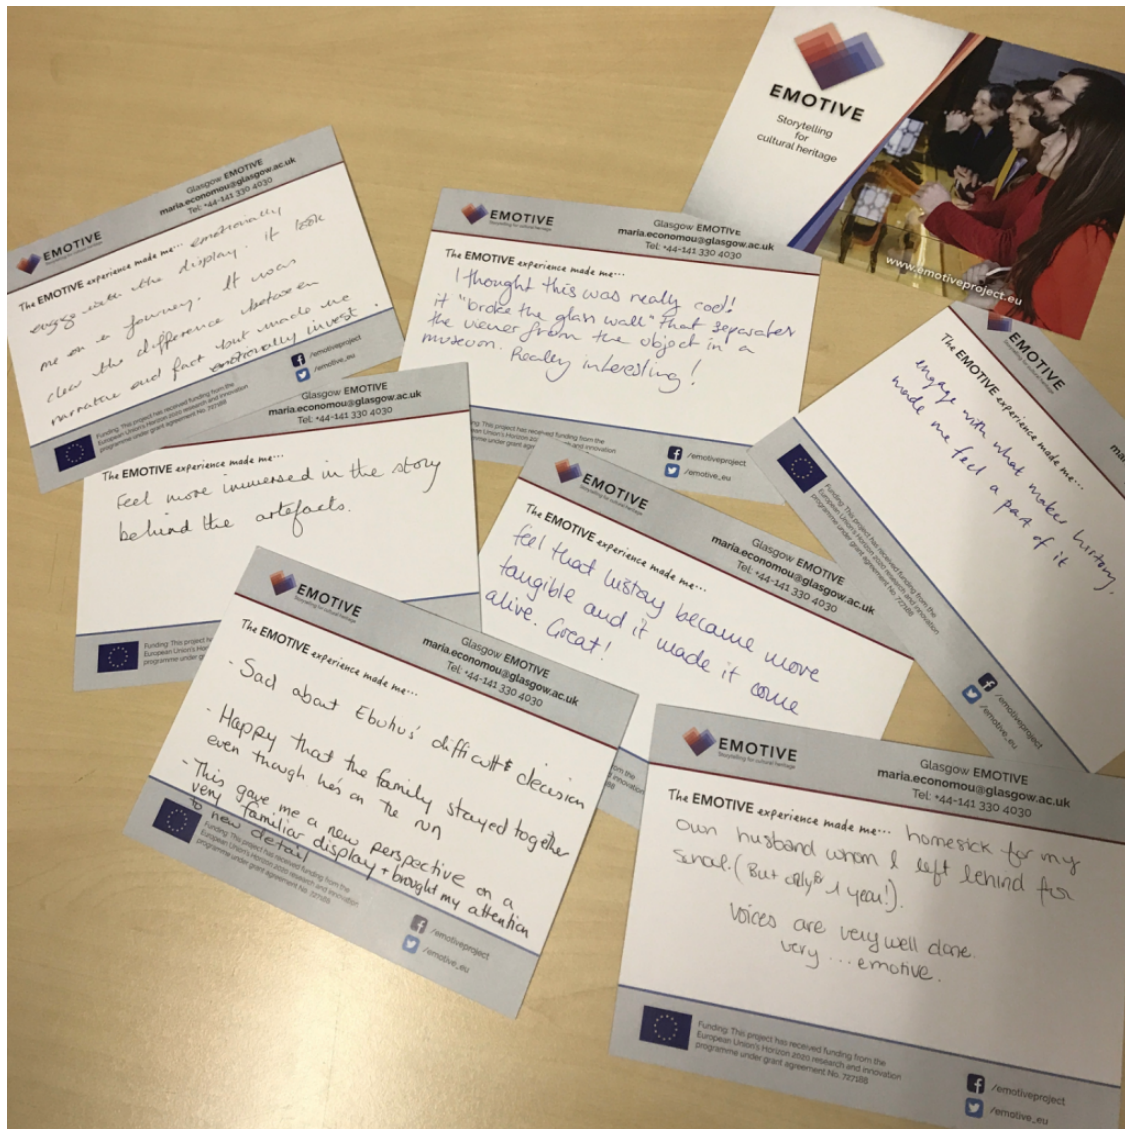 EMOTIVE
Storytelling
for
cultural heritage
www.emotiveproject.eu
Glasgow EMOTIVE
maria.economou@glasgow.ac.uk
Tel: +44-141 330 4030
EMOTIVE
Storytelling for cultural heritage
The EMOTIVE experience made me... emotionally
engage with the display. It took
me on a journey. It was
clear the difference between
narrative and fact but made me
emotionally invest.
/emotiveproject
/emotive_eu
Funding: This project has received funding from the
European Union's Horizon 2020 research and innovation
programme under grant agreement No. 727188
EMOTIVE
Storytelling for cultural heritage
Glasgow EMOTIVE
maria.economou@glasgow.ac.uk
Tel: +44-141 330 4030
The EMOTIVE experience made me...
I thought this was really cool!
it "broke the glass wall" that separates
the viewer from the object in a
museum. Really interesting!
project has received funding from the
Union's Horizon 20 and innovation
under grant agree
/emotiveproject
/emotive_eu
EMOTIVE
The EMOTIVE experience made me...
engage with what makes history,
made me feel a part of it
Funding: This project has received funding from the
European Union's Horizon 2020 research and innovation
programme under grant agreement No. 727188
/emotiveproject
/emotive_eu
Glasgow EMOTIVE
maria.economou@glasgow.ac.uk
Tel: +44-141 330 4030
The EMOTIVE experience made me...
Feel more immersed in the story
behind the artefacts.
Funding: This project h
European Union's Hori
programme under g
EMOTIVE
Storytelling for cultural heritage
Glasgow EMOTIVE
maria.economou@glasgow.ac.uk
Tel: +44-141 330 4030
The EMOTIVE experience made me...
feel that history became more
tangible and it made it come
alive. Great!
EMOTIVE
Storytelling for cultural heritage
Glasgow EMOTIVE
maria.economou@glasgow.ac.uk
Tel: +44-141 330 4030
The EMOTIVE experience made me...
- Sad about Ebuhus' difficult decision
- Happy that the family stayed together
even though he's on the run
- This gave me a new perspective on a
very familiar display + brought my attention
to new detail
Funding: This project has received funding from the
European Union's Horizon 2020 research and innovation
programme under grant agreement No. 727188
/emotiveproject
/emotive_eu
EMOTIVE
Storytelling for cultural heritage
Glasgow EMOTIVE
maria.economou@glasgow.ac.uk
Tel: +44-141 330 4030
The EMOTIVE experience made me... homesick for my
own husband whom I left behind for
school. (But only 1 year!).
Voices are very well done.
very ... emotive.
Funding: This project has received funding from the
European Union's Horizon 2020 research and innovation
programme under grant agreement No. 727188
/emotiveproject
/emotive_eu